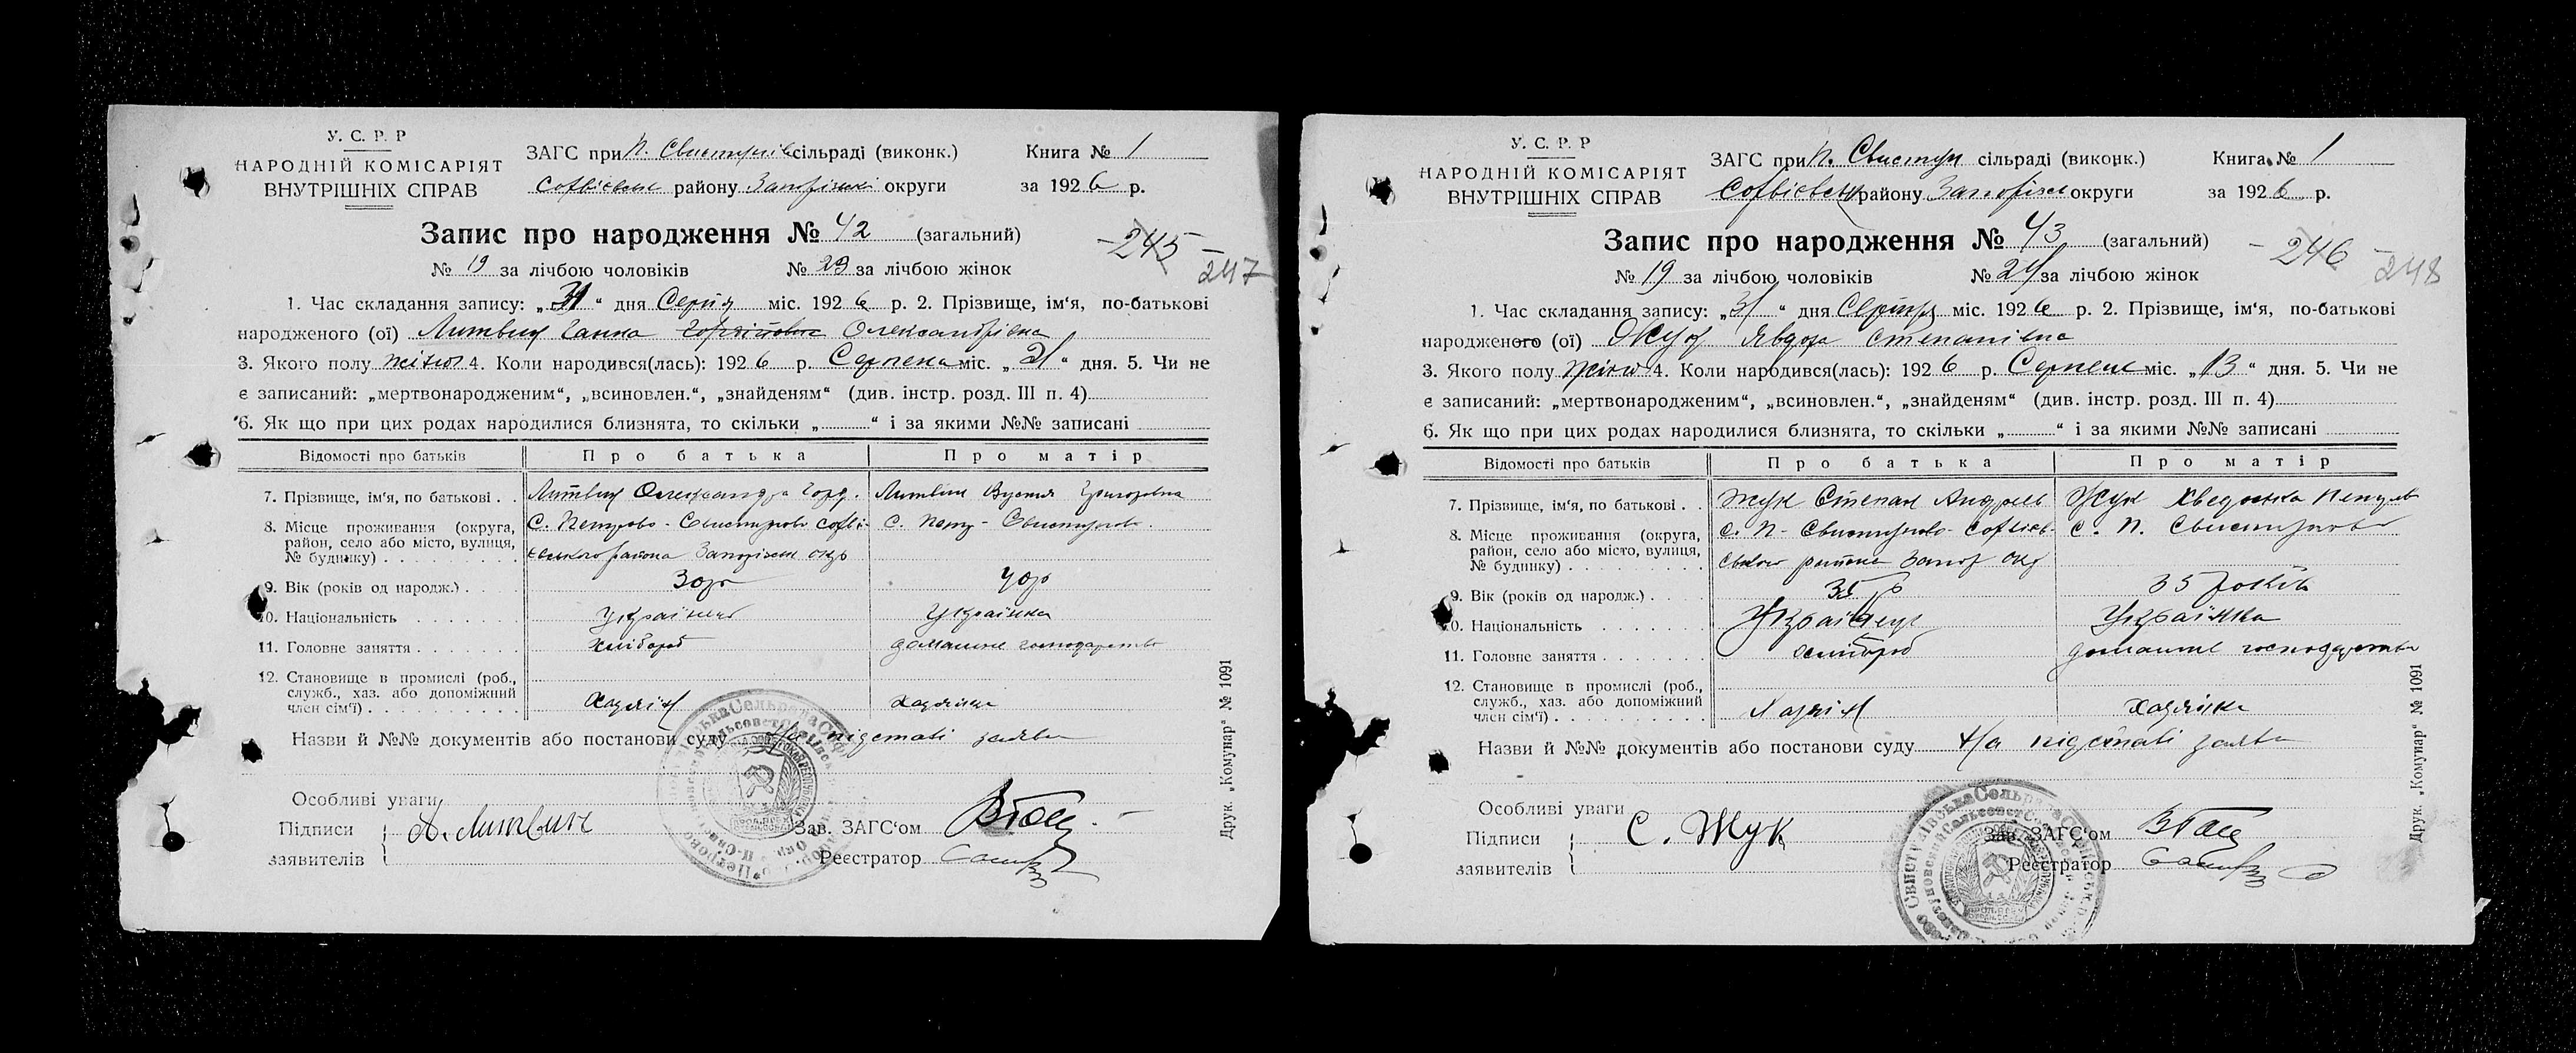 У. С. Р. Р
НАРОДНІЙ КОМІСАРІЯТ
ВНУТРІШНІХ СПРАВ
ЗАГС при П. Свистунів сільраді (виконк.)
Софієвськ району Запоріжськ округи
Книга № 1
за 1926 р.
Запис про народження № 42 (загальний)
№ 19 за лічбою чоловіків № 23 за лічбою жінок
245
247
1. Час складання запису: „31“ дня Серпня міс. 1926 р. 2. Прізвище, ім‘я, по-батькові
народженого (ої) Литвин Ганна Олександрівна
3. Якого полу жіноч 4. Коли народився(лась): 1926 р. Серпень міс. „21“ дня. 5. Чи не
є записаний: „мертвонародженим“, „всиновлен.“, „знайденям“ (див. інстр. розд. III п. 4)
6. Як що при цих родах народилися близнята, то скільки „ “ і за якими №№ записані
Відомості про батьків Про батька Про матір
7. Прізвище, ім‘я, по батькові . . Литвин Олександр Горд. Литвин Григоровна
8. Місце проживання (округа, район, село або місто, вулиця, № будинку) С. Петрово-Свистуново Софієвського района Запоріжськ окр С. Петр-Свистуново
9. Вік (років од народж.) 30 р 40 р
10. Національність Українець Українка
11. Головне заняття хлібороб домашнє господарство
12. Становище в промислі (роб., служб., хаз. або допоміжний член сім‘ї) Хазяїн Хазяйка
Назви й №№ документів або постанови суду На підставі заяви
Особливі уваги
Підписи заявителів А. Литвин
Зав. ЗАГС‘ом
Реєстратор
Друк. „Комунар“ № 1091
У. С. Р. Р
НАРОДНІЙ КОМІСАРІЯТ
ВНУТРІШНІХ СПРАВ
ЗАГС при П. Свистун сільраді (виконк.)
Софієвськ району Запоріжс округи
Книга № 1
за 1926 р.
Запис про народження № 43 (загальний)
№ 19 за лічбою чоловіків № 24 за лічбою жінок
246
248
1. Час складання запису: „31“ дня Серпня міс. 1926 р. 2. Прізвище, ім‘я, по-батькові
народженого (ої) Жук Явдоха Степанівна
3. Якого полу жіноч 4. Коли народився(лась): 1926 р. Серпень міс. „13“ дня. 5. Чи не
є записаний: „мертвонародженим“, „всиновлен.“, „знайденям“ (див. інстр. розд. III п. 4)
6. Як що при цих родах народилися близнята, то скільки „ “ і за якими №№ записані
Відомості про батьків Про батька Про матір
7. Прізвище, ім‘я, по батькові . . Жук Степан Андрієв Жук Хведоська
8. Місце проживання (округа, район, село або місто, вулиця, № будинку) с. П-Свистуново Софієвського района Запор окр с. П. Свистуново
9. Вік (років од народж.) 35 р 35 років
10. Національність Українець Українка
11. Головне заняття хлібороб домашнє господарство
12. Становище в промислі (роб., служб., хаз. або допоміжний член сім‘ї) Хазяїн Хазяйка
Назви й №№ документів або постанови суду На підставі заяви
Особливі уваги
Підписи заявителів С. Жук
Зав. ЗАГС‘ом
Реєстратор
Друк. „Комунар“ № 1091